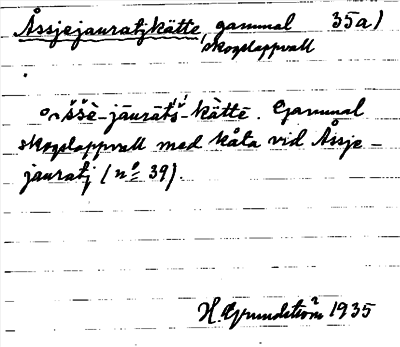 Åssjejauratjkåtte, gammal 35a)
skogslappvall
-jäurāts-kåttē. Gammal
skogslappvall med kåta vid Åssje-
jauratj (nº 39).
H. Grundström 1935